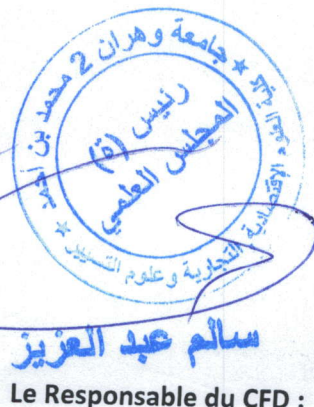 جامعة وهران 2 محمد بن أحمد
كلية العلوم الاقتصادية التجارية وعلوم التسيير
رئيس (ة)
المجلس العلمي
سالم عبد العزيز
Le Responsable du CFD :